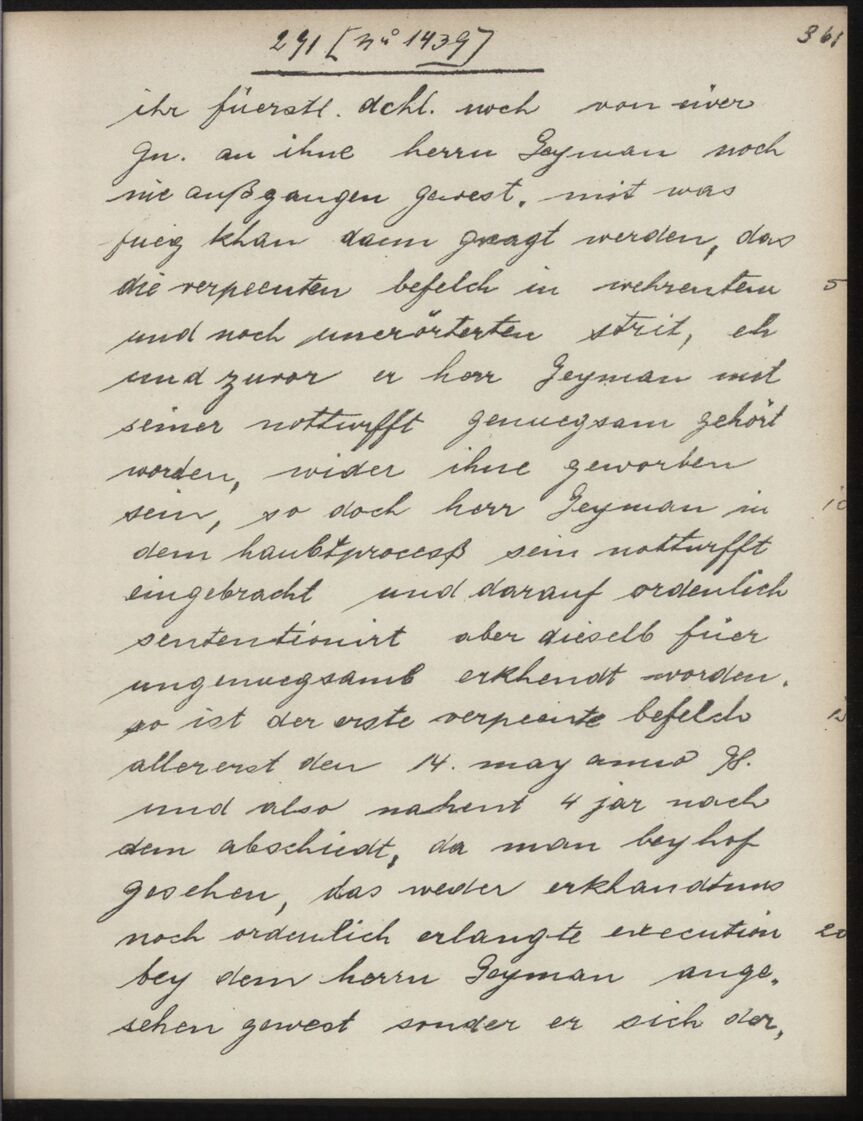 291 [nº 1439]
361
ihr füerstl. dchl. noch von eüer
Gn. an ihne herrn Geyman noch
nie außgangen gewest. mit was
fueg khan dann gesagt werden, das
die verpeenten befelch in wehrentem 5
und noch unerörterten strit, eh
und zuvor er herr Geyman mit
seiner notturfft genuegsam gehört
worden, wider ihne geworben
sein, so doch herr Geyman in 10
dem haubtprocesß sein notturfft
eingebracht und darauf ordenlich
sententionirt aber dieselb füer
ungenuegsamb erkhendt worden.
so ist der erste verpeente befelch 15
allererst den 14. may anno 98.
und also nahent 4 jar nach
dem abschiedt, da man bey hof
gesehen, das weder erkhandtnus
noch ordenlich erlangte execution 20
bey dem herrn Geyman ange,
sehen gewest sonder er sich der,